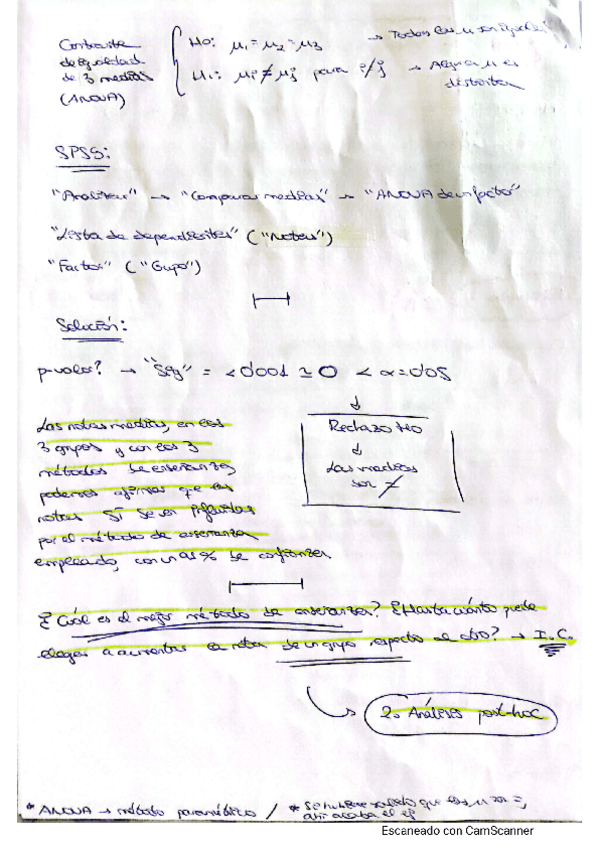 Contraste de igualdad de 3 medias (ANOVA)
H0: μ1 = μ2 = μ3 → Todas las μ son iguales
H1: μi ≠ μj para i≠j → Alguna μ es distinta
SPSS:
"Analizar" → "Comparar medias" → "ANOVA de un factor"
"Lista de dependientes" ("Notas")
"Factor" ("Grupo")
Solución:
p-valor? → "Sig" = <0'001 ≃ 0 < α = 0'05
↓
Rechazo H0
↓
Las medias
son ≠
Las notas medias, en los
3 grupos y con los 3
métodos de enseñanza,
podemos afirmar que las
notas SÍ se ven influidas
por el método de enseñanza
empleado, con un 95% de confianza
¿Cuál es el mejor método de enseñanza? ¿Hasta cuánto puede
llegar a aumentar la nota de un grupo respecto al otro? → I.C.
2. Análisis post-hoc
* ANOVA → método paramétrico / * Si hubiese salido que las μ son =,
ahí acaba el ej
Escaneado con CamScanner